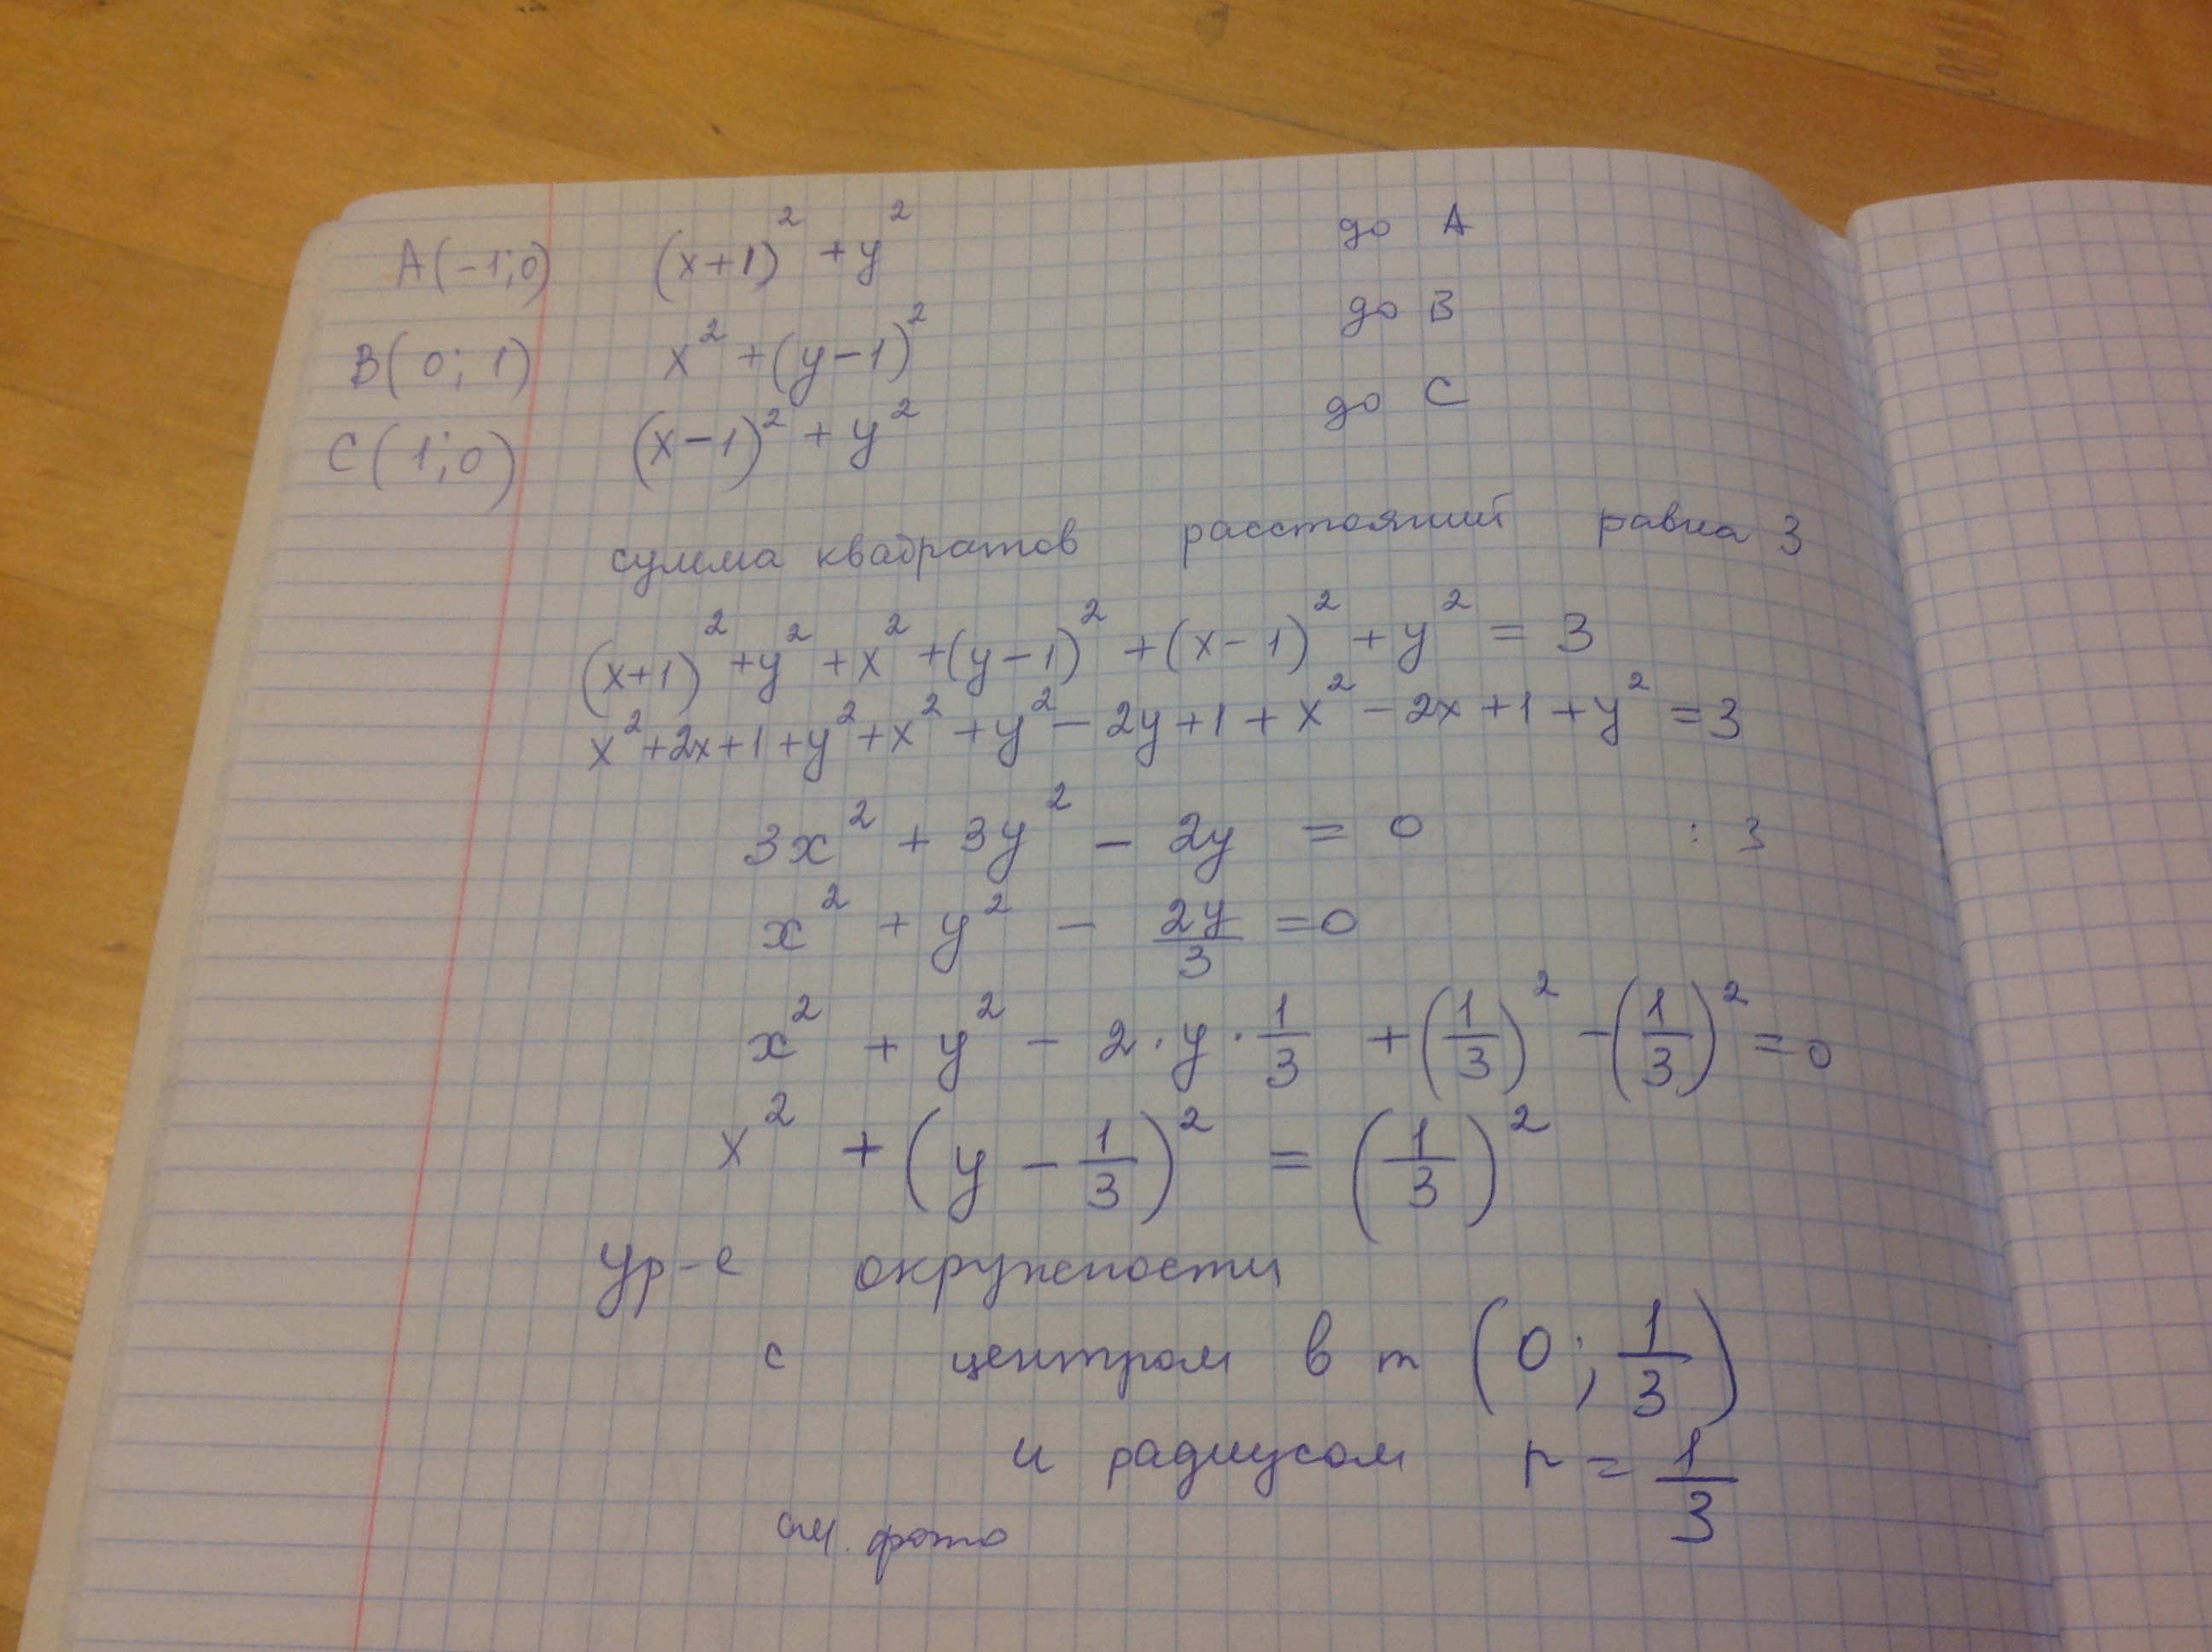 A(-1;0) (x+1)² + y² до A
B(0;1) x² + (y-1)² до B
C(1;0) (x-1)² + y² до C
сумма квадратов расстояний равна 3
(x+1)² + y² + x² + (y-1)² + (x-1)² + y² = 3
x² + 2x + 1 + y² + x² + y² - 2y + 1 + x² - 2x + 1 + y² = 3
3x² + 3y² - 2y = 0 : 3
x² + y² - 2y/3 = 0
x² + y² - 2·y·1/3 + (1/3)² - (1/3)² = 0
x² + (y - 1/3)² = (1/3)²
Ур-е окружности
с центром в т (0; 1/3)
и радиусом r = 1/3
см. фото